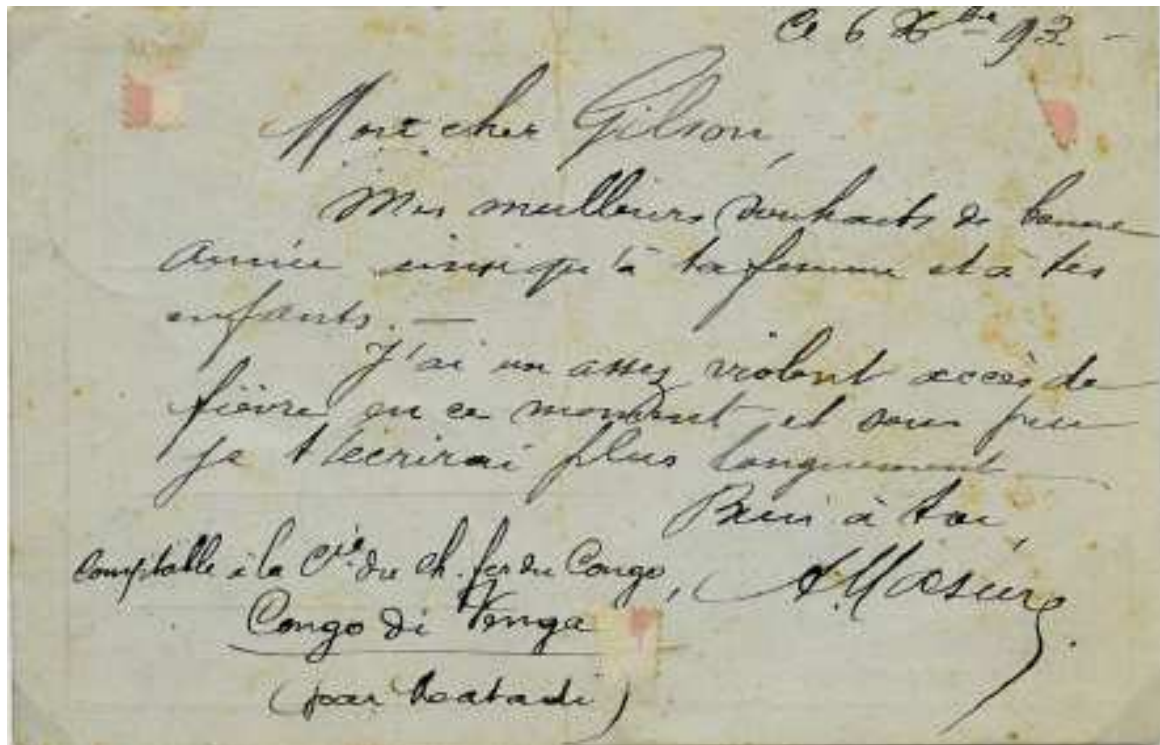 Ce 6 Xbre 93 -
Mon cher Gilson,
Mes meilleurs souhaits de bonne
année ainsi qu'à ta femme et à tes
enfants. —
J'ai un assez violent accès de
fièvre en ce moment et sous peu
je t'écrirai plus longuement
Bien à toi,
A. Masure
Comptable à la Cie du Ch. fer du Congo,
Congo di Venga
(par Matadi)